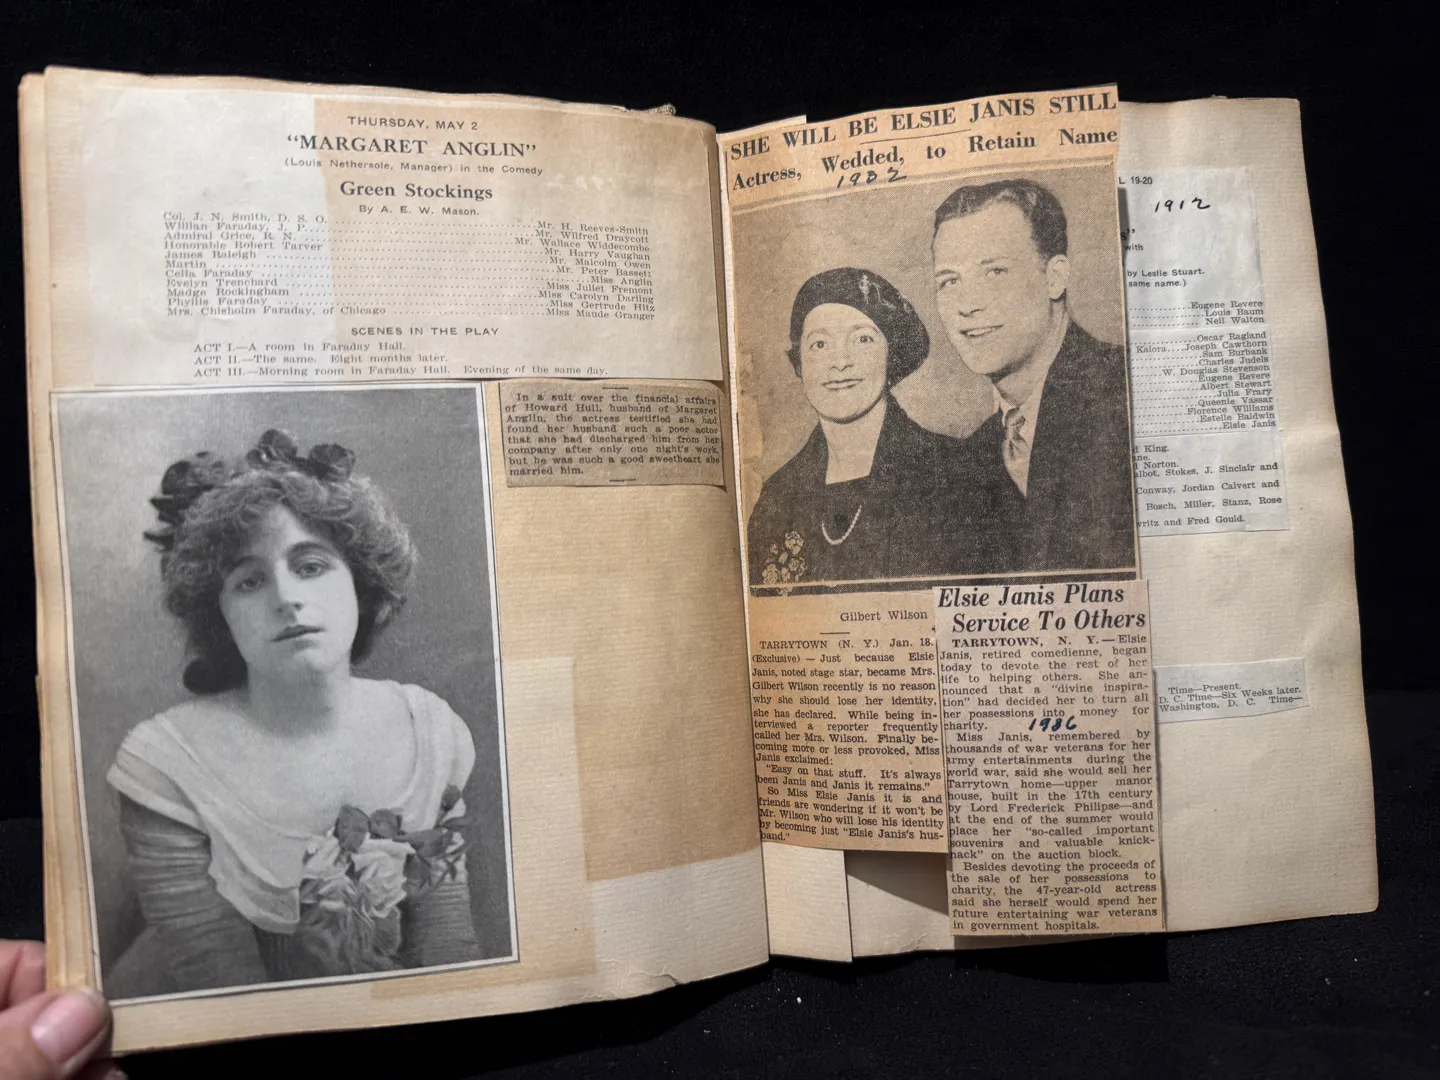 THURSDAY, MAY 2
"MARGARET ANGLIN"
(Louis Nethersole, Manager) in the Comedy
Green Stockings
By A. E. W. Mason.
Col. J. N. Smith, D. S. O. ........ Mr. H. Reeves-Smith
Willian Faraday, J. P. ........ Mr. Wilfred Draycott
Admiral Grice, R. N. ........ Mr. Wallace Widdecombe
Honorable Robert Tarver ........ Mr. Harry Vaughan
James Raleigh ........ Mr. Malcolm Owen
Martin ........ Mr. Peter Bassett
Celia Faraday ........ Miss Anglin
Evelyn Trenchard ........ Miss Juliet Fremont
Madge Rockingham ........ Miss Carolyn Darling
Phyllis Faraday ........ Miss Gertrude Hitz
Mrs. Chisholm Faraday, of Chicago ........ Miss Maude Granger
SCENES IN THE PLAY
ACT I.—A room in Faraday Hall.
ACT II.—The same. Eight months later.
ACT III.—Morning room in Faraday Hall. Evening of the same day.
In a suit over the financial affairs
of Howard Hull, husband of Margaret
Anglin, the actress testified she had
found her husband such a poor actor
that she had discharged him from her
company after only one night's work,
but he was such a good sweetheart she
married him.
SHE WILL BE ELSIE JANIS STILL
Actress, Wedded, to Retain Name
1932
Gilbert Wilson
TARRYTOWN (N. Y.) Jan. 18.
(Exclusive) — Just because Elsie
Janis, noted stage star, became Mrs.
Gilbert Wilson recently is no reason
why she should lose her identity,
she has declared. While being in-
terviewed a reporter frequently
called her Mrs. Wilson. Finally be-
coming more or less provoked, Miss
Janis exclaimed:
"Easy on that stuff. It's always
been Janis and Janis it remains."
So Miss Elsie Janis it is and
friends are wondering if it won't be
Mr. Wilson who will lose his identity
by becoming just "Elsie Janis's hus-
band."
Elsie Janis Plans
Service To Others
TARRYTOWN, N. Y.—Elsie
Janis, retired comedienne, began
today to devote the rest of her
life to helping others. She an-
nounced that a "divine inspira-
tion" had decided her to turn all
her possessions into money for
charity. 1936
Miss Janis, remembered by
thousands of war veterans for her
army entertainments during the
world war, said she would sell her
Tarrytown home—upper manor
house, built in the 17th century
by Lord Frederick Philipse—and
at the end of the summer would
place her "so-called important
souvenirs and valuable knick-
nack" on the auction block.
Besides devoting the proceeds of
the sale of her possessions to
charity, the 47-year-old actress
said she herself would spend her
future entertaining war veterans
in government hospitals.
L 19-20
1912
s"
with
by Leslie Stuart.
same name.)
Eugene Revere
Louis Baum
Neil Walton
Oscar Ragland
Kalora....Joseph Cawthorn
Sam Burbank
Charles Judels
W. Douglas Stevenson
Eugene Revere
Albert Stewart
Julia Frary
Queenie Vassar
Florence Williams
Estelle Baldwin
Elsie Janis
d King.
ne.
l Norton.
albot, Stokes, J. Sinclair and
Conway, Jordan Calvert and
Bosch, Miller, Stanz, Rose
writz and Fred Gould.
Time—Present.
D. C. Time—Six Weeks later.
Washington, D. C. Time—